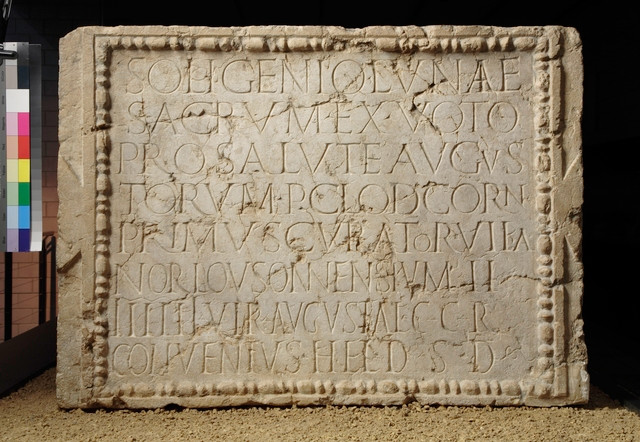 SOLI GENIO LVNAE
SACRVM EX VOTO
PRO SALVTE AVGVS
TORVM P CLOD CORN
PRIMVS CVRATOR VIKA
NOR LOVSONNENSIVM II
IIIIIIVIR AVGVSTAL C C R
CONVENTVS HEL D S D